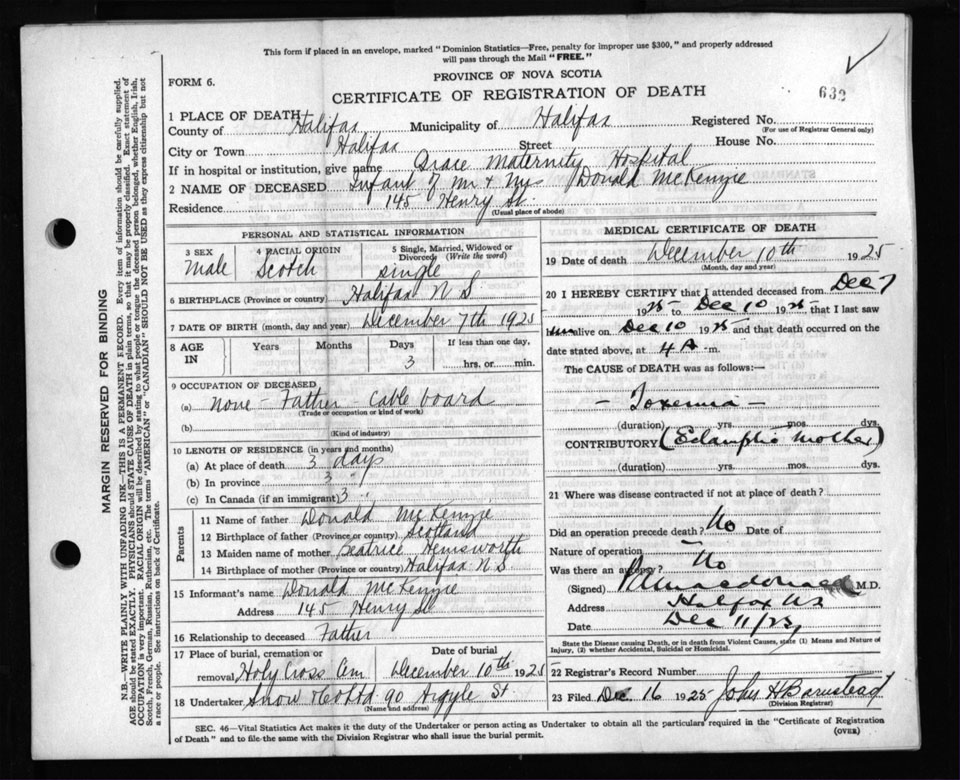 This form if placed in an envelope, marked "Dominion Statistics—Free, penalty for improper use $300," and properly addressed
will pass through the Mail "FREE."
PROVINCE OF NOVA SCOTIA
FORM 6.
CERTIFICATE OF REGISTRATION OF DEATH
632
1 PLACE OF DEATH
County of Halifax Municipality of Halifax Registered No.
(For use of Registrar General only)
City or Town Halifax Street House No.
If in hospital or institution, give name Grace Maternity Hospital
2 NAME OF DECEASED Infant of Mr & Mrs Donald McKenzie
Residence 145 Henry St.
(Usual place of abode)
PERSONAL AND STATISTICAL INFORMATION
3 SEX Male
4 RACIAL ORIGIN Scotch
5 Single, Married, Widowed or Divorced (Write the word) single
6 BIRTHPLACE (Province or country) Halifax N S
7 DATE OF BIRTH (month, day and year) December 7th 1925
8 AGE IN Years Months Days 3 If less than one day, hrs. or min.
9 OCCUPATION OF DECEASED
(a) none - Father - cable board
(Trade or occupation or kind of work)
(b)
(Kind of industry)
10 LENGTH OF RESIDENCE (in years and months)
(a) At place of death 3 days
(b) In province 3 "
(c) In Canada (if an immigrant) 3 "
Parents
11 Name of father Donald McKenzie
12 Birthplace of father (Province or country) Scotland
13 Maiden name of mother Beatrice Hemsworth
14 Birthplace of mother (Province or country) Halifax N S
15 Informant's name Donald McKenzie
Address 145 Henry St
16 Relationship to deceased Father
17 Place of burial, cremation or removal Holy Cross Cem
Date of burial December 10th 1925
18 Undertaker Snow & Co Ltd 90 Argyle St
(Name and address)
MEDICAL CERTIFICATE OF DEATH
19 Date of death December 10th 1925
(Month, day and year)
20 I HEREBY CERTIFY that I attended deceased from Dec 7
1925 to Dec 10 1925, that I last saw
him alive on Dec 10 1925 and that death occurred on the
date stated above, at 4 A m.
The CAUSE of DEATH was as follows:—
- Toxemia -
(duration) yrs. mos. dys.
CONTRIBUTORY (Eclamptic Mother)
(duration) yrs. mos. dys.
21 Where was disease contracted if not at place of death?
Did an operation precede death? No Date of
Nature of operation —
Was there an autopsy? No
(Signed) Macdonald M.D.
Address Halifax NS
Date Dec 11/25
State the Disease causing Death, or in death from Violent Causes, state (1) Means and Nature of
Injury, (2) whether Accidental, Suicidal or Homicidal.
22 Registrar's Record Number
23 Filed Dec 16 1925 John H Barnstead
(Division Registrar)
SEC. 46—Vital Statistics Act makes it the duty of the Undertaker or person acting as Undertaker to obtain all the particulars required in the "Certificate of Registration
of Death" and to file the same with the Division Registrar who shall issue the burial permit.
(OVER)
MARGIN RESERVED FOR BINDING
N.B.—WRITE PLAINLY WITH UNFADING INK—THIS IS A PERMANENT RECORD. Every item of information should be carefully supplied.
AGE should be stated EXACTLY. PHYSICIANS should STATE CAUSE OF DEATH in plain terms, so that it may be properly classified. Exact statement of
OCCUPATION is very important. RACIAL ORIGIN will be described by stating to what people or tongue the deceased person belonged, whether English, Irish,
Scotch, French, German, Russian, Ruthenian, etc. The terms "AMERICAN" or "CANADIAN" SHOULD NOT BE USED as they express citizenship but not
a race or people. See instructions on back of Certificate.